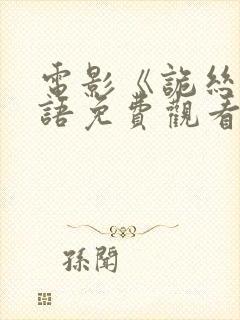 電影《詭絲
語免費觀看
孫聞